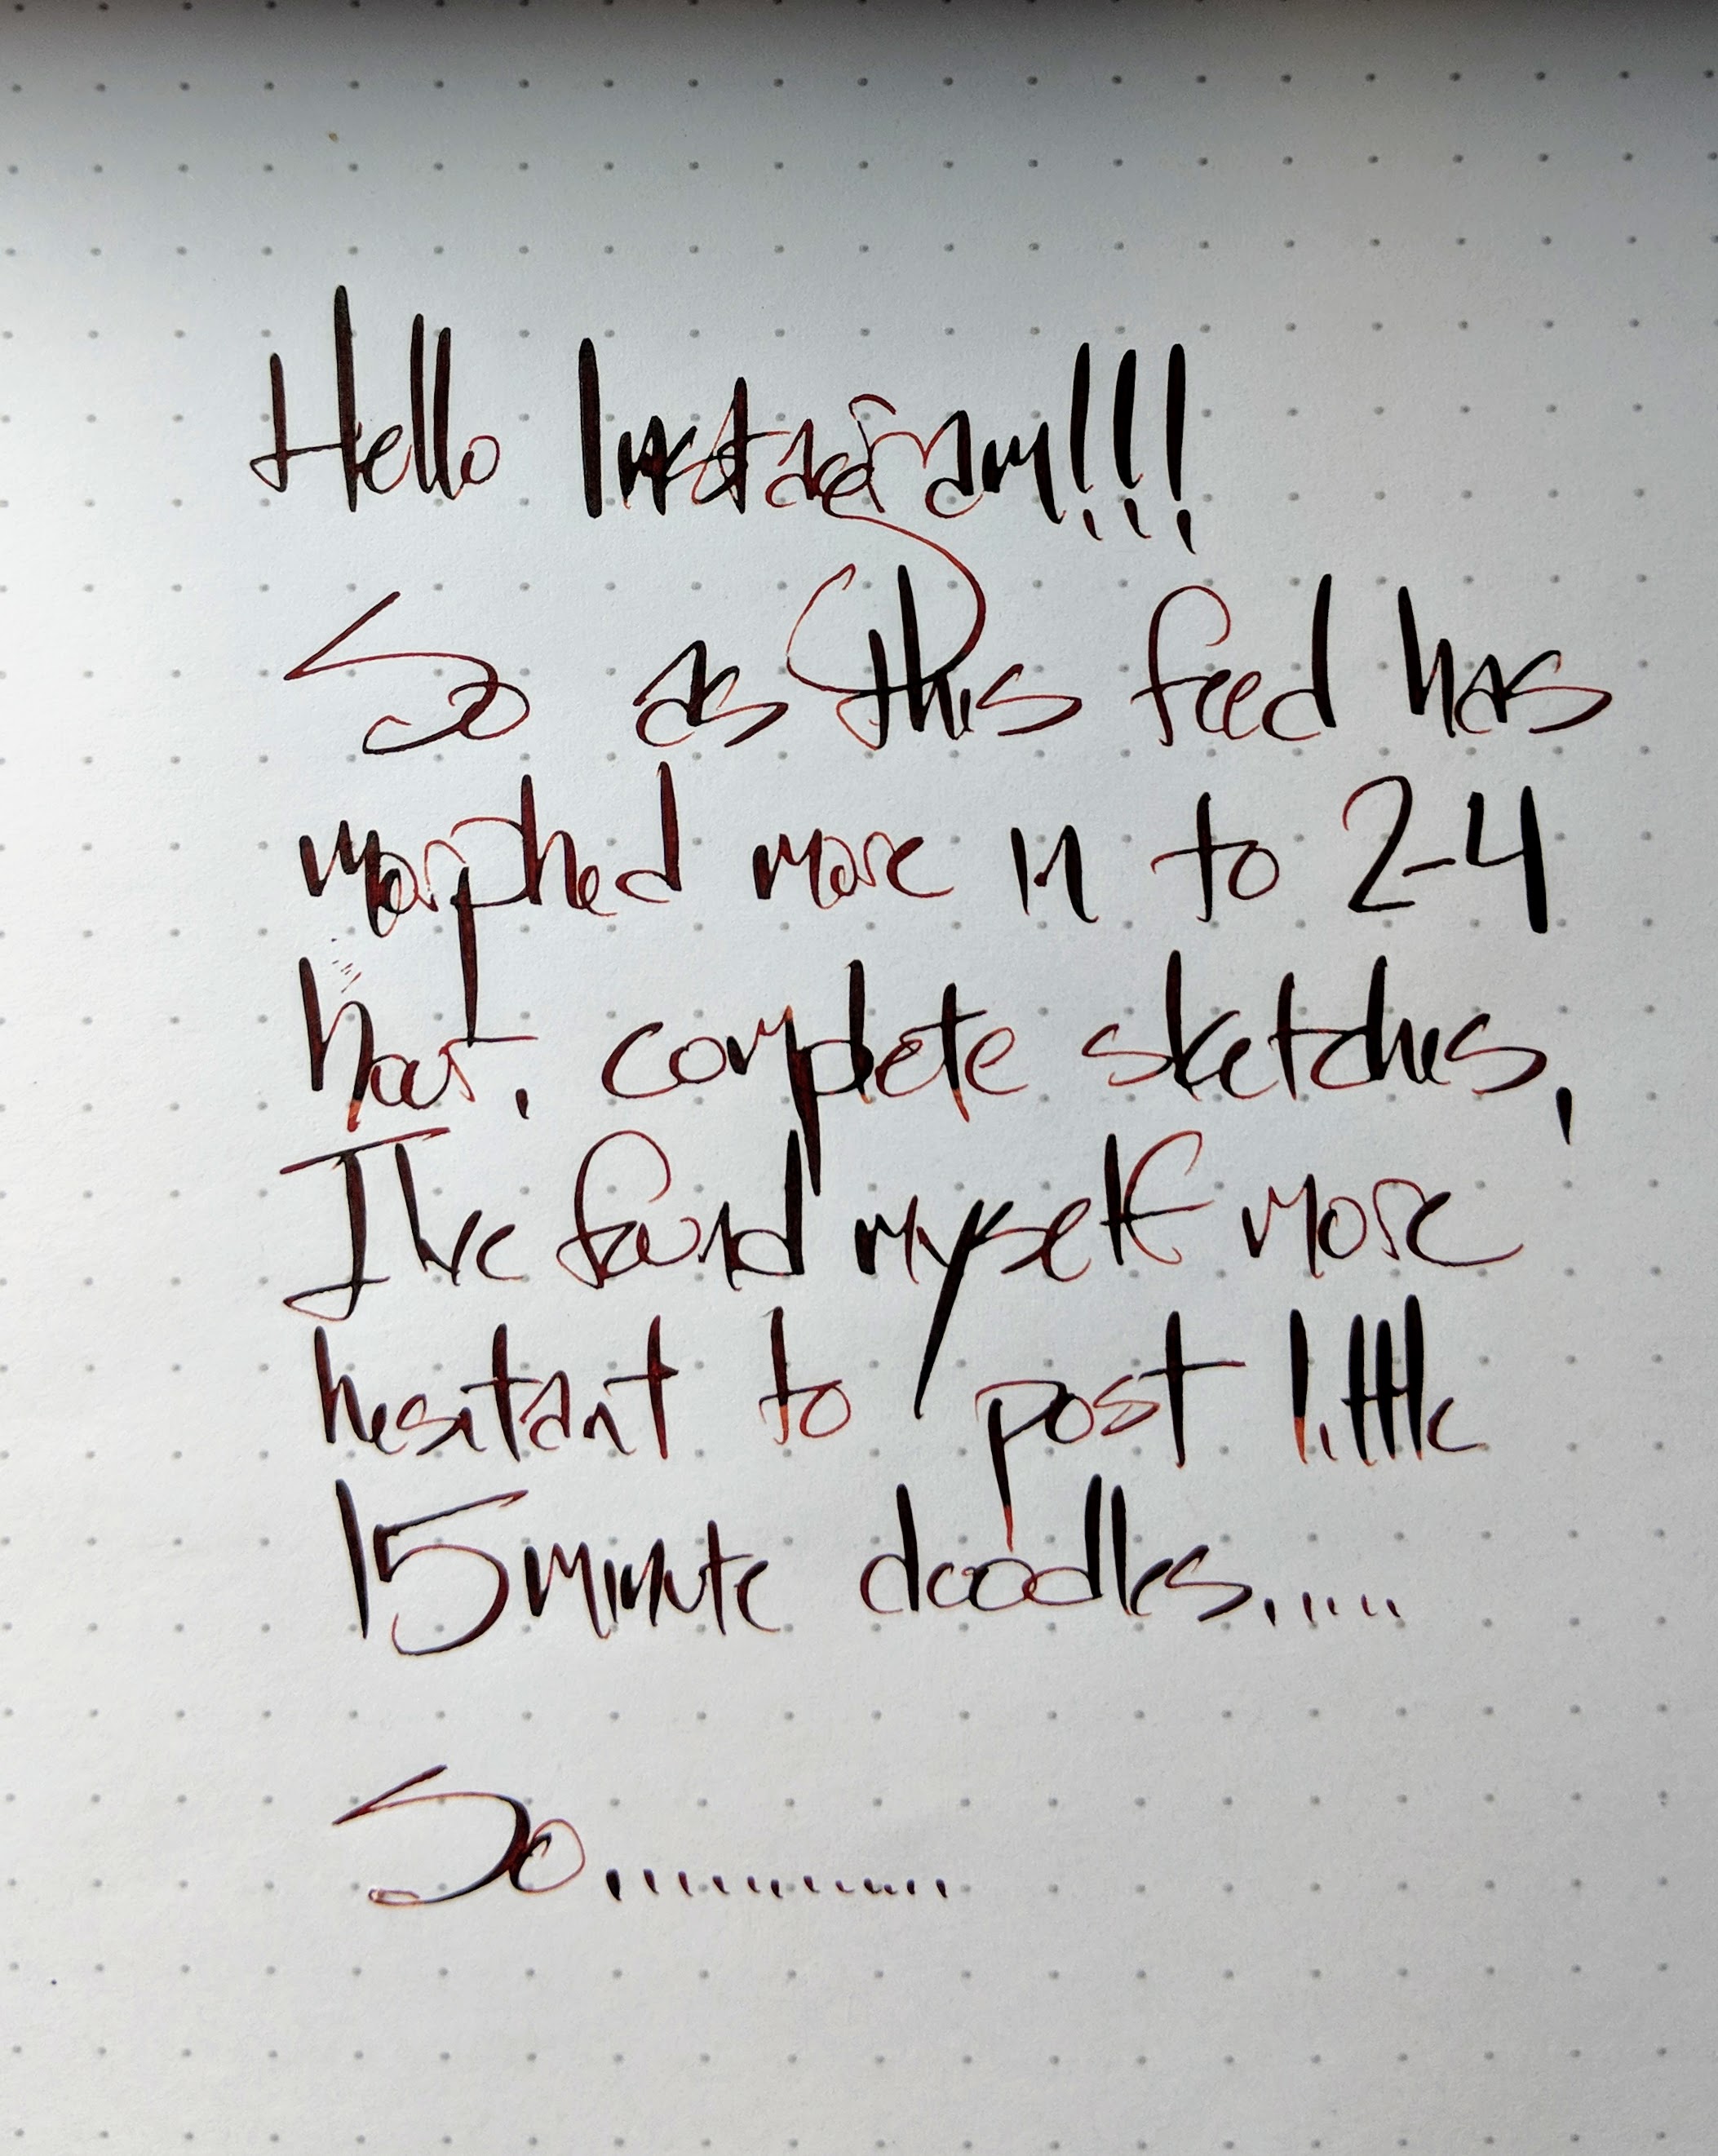 Hello Instagram!!!
So as this feed has
morphed more in to 2-4
hour, complete sketches,
I've found myself more
hesitant to post little
15 minute doodles.....
So............